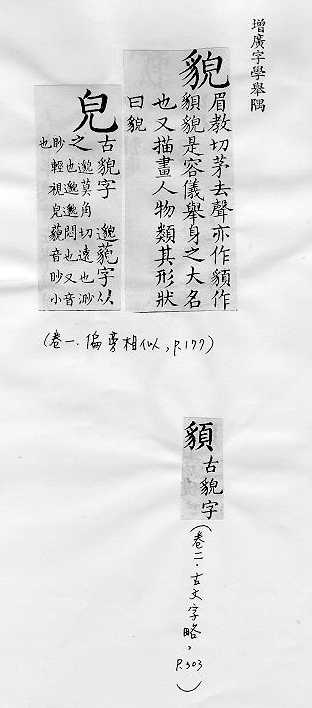 增廣字學舉隅
貌
眉教切茅去聲亦作䫉作
䫉貌是容儀舉身之大名
也又描畫人物類其形狀
曰貌
皃
古貌字 邈藐字以
之 邈莫角切遠也渺
也邈邈悶也又音
眇輕視皃藐音眇小
也
(卷一.偏旁相似,P.177)
䫉
古貌字
(卷二.古文字略,P.303)